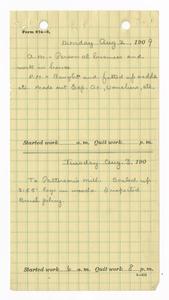 Form 874-5.
Monday Aug 2, 1909
A.M. - Personal business and
work in house
P.M. - Bought and fitted up saddle
etc. Made out Exp. Ac., Vouchers, etc.
Started work a.m. Quit work p.m.
Tuesday Aug 3, 190
To Patterson's Mill. Scaled up
3155 logs in woods. Inspected
brush piling.
Started work 6 a.m. Quit work 8 p.m.